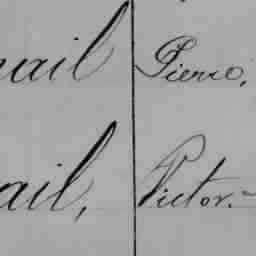 ail Pierre,
ail, Victor.-